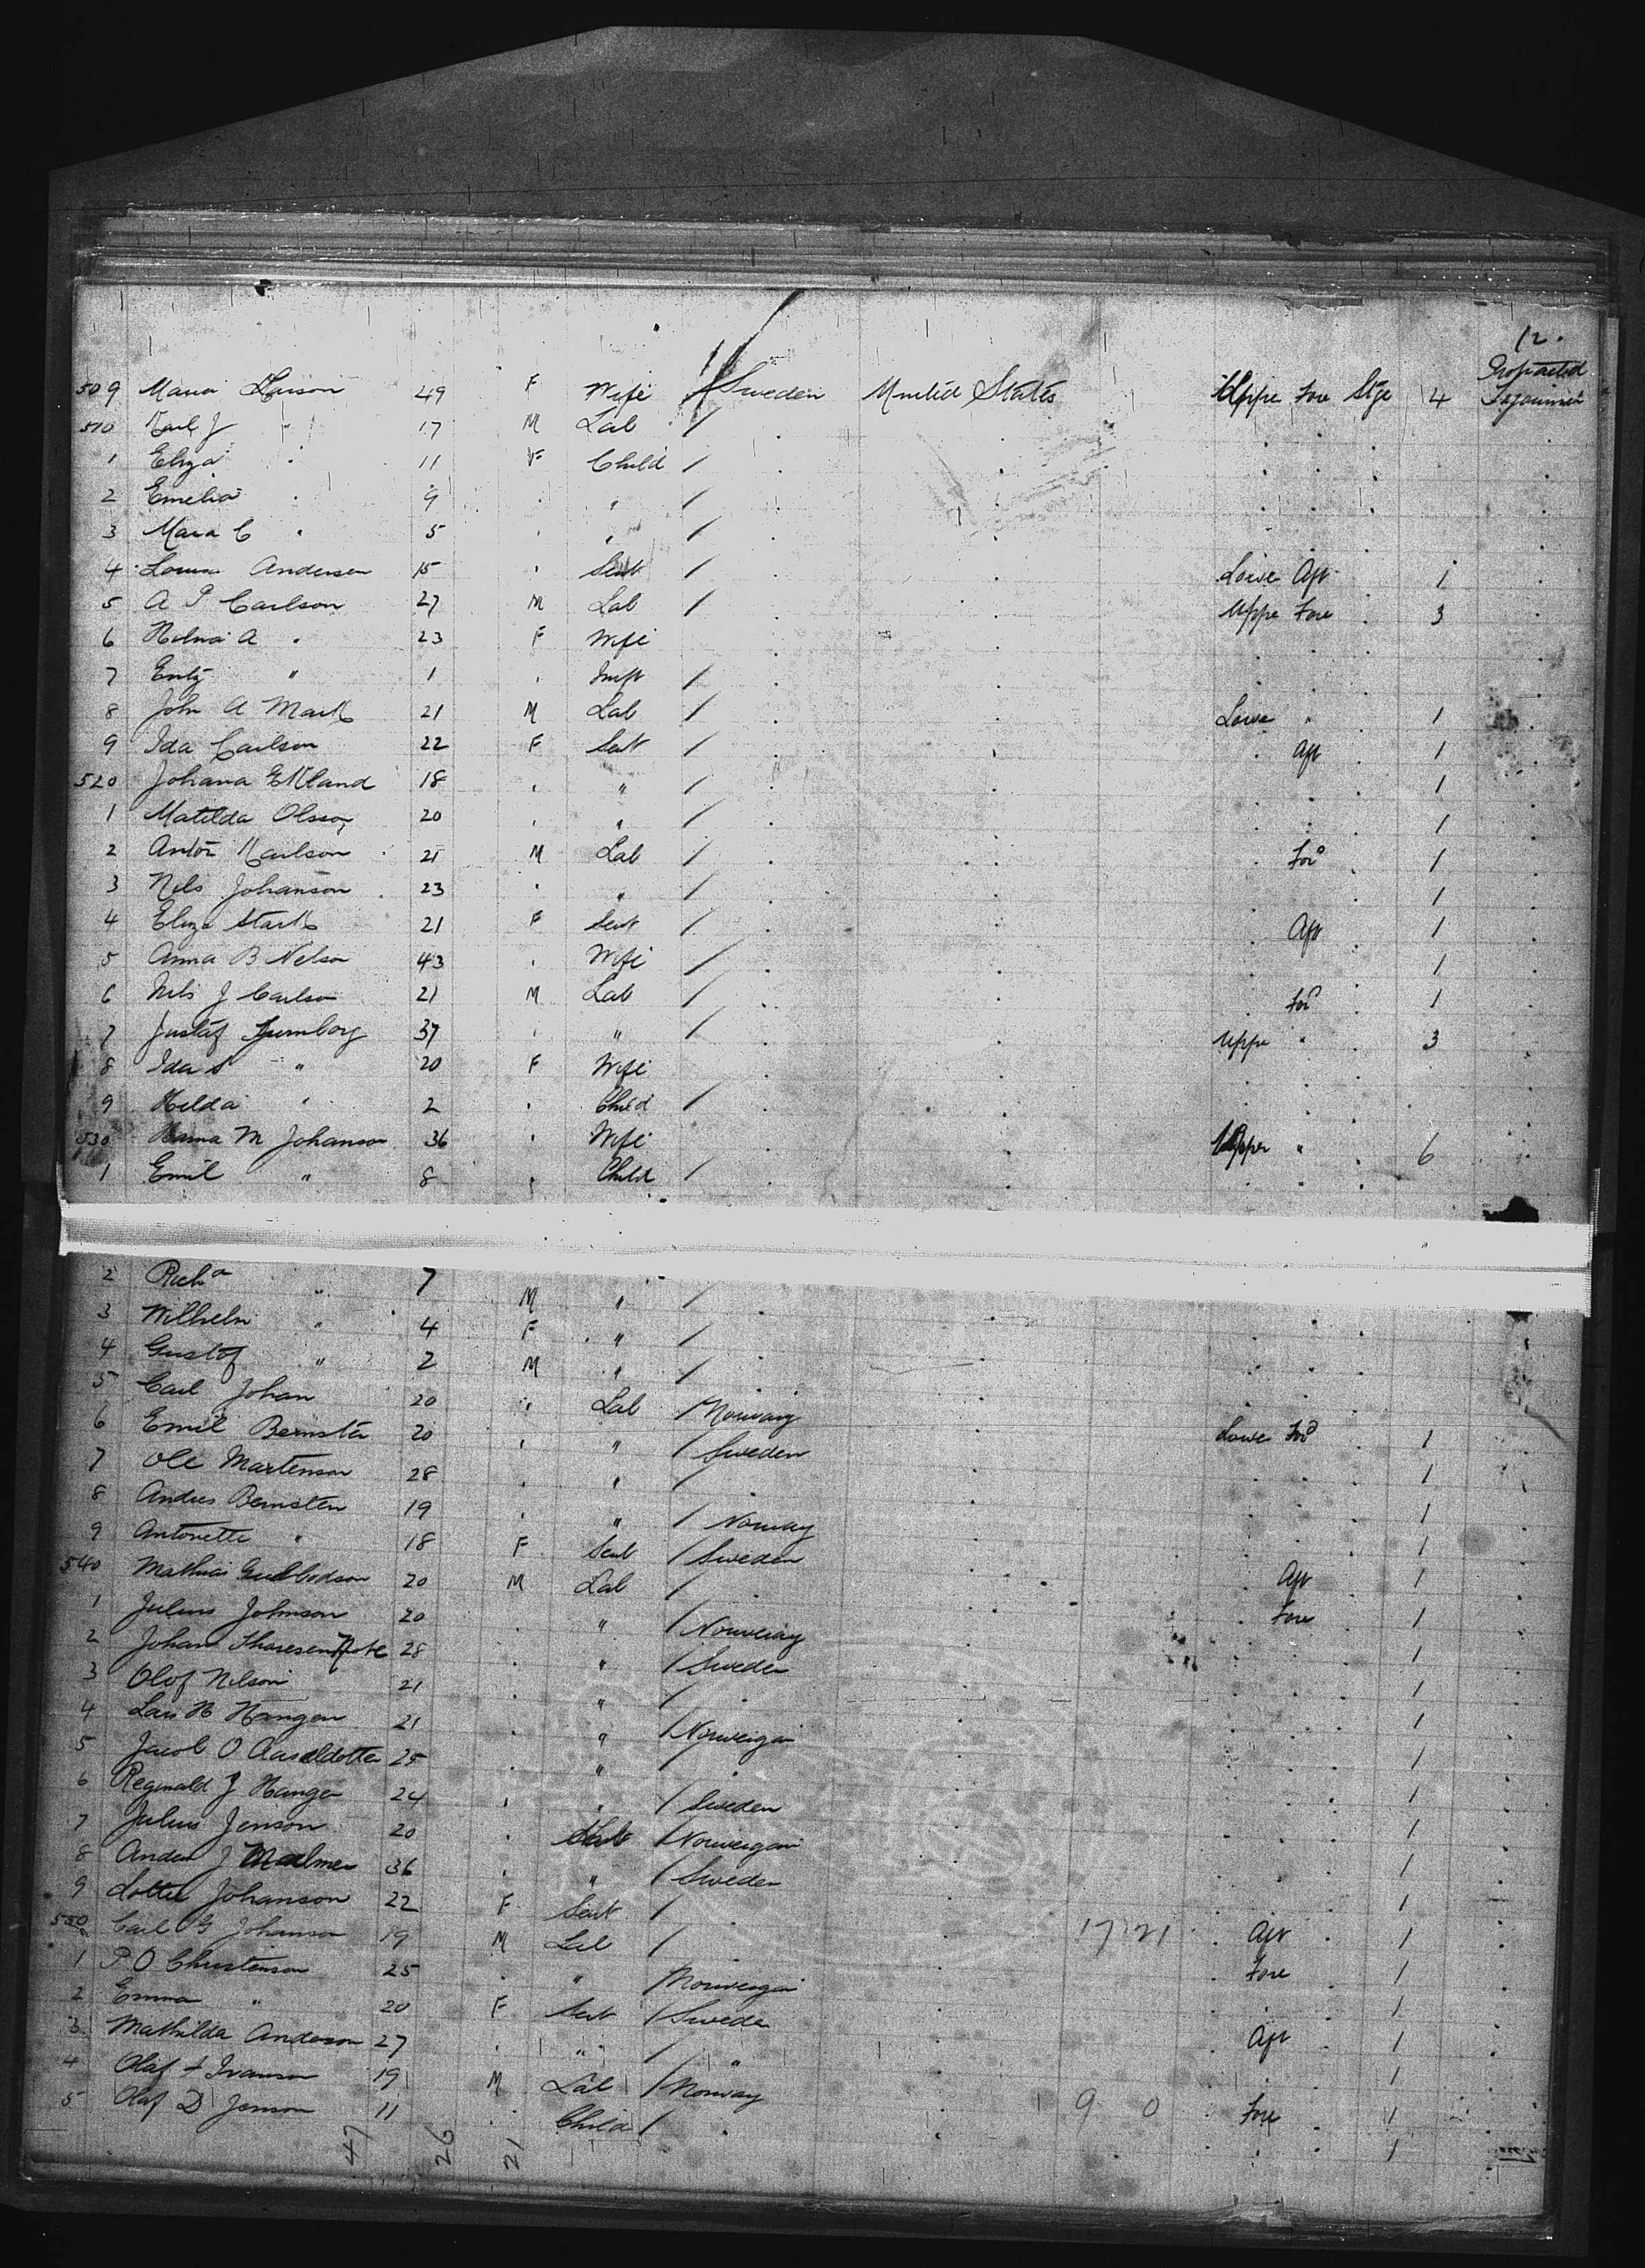 12.
Protracted
509 Maria Larson 49 F Wife / Sweden United States Uppe Fore Stge 4 Sojourner
510 Karl J " 17 M Lab / . . . . . .
1 Eliza " 11 F Child / . . . . . .
2 Emelia " 9 . " / . . . . . .
3 Maria C " 5 . " / . . .
4 Louisa Andersen 15 . Sevt / . . Lower Aft . 1 .
5 A P Carlson 27 M Lab / . . Uppe Fore . 3 .
6 A " 23 F Wife . . . . . .
7 " 1 . Inft / . . . . . .
8 John A Mark 21 M Lab / . . Lowe " . 1 .
9 Ida Carlson 22 F Sevt / . . . Aft . 1 .
520 Johana Ekland 18 . " / . . . . . 1 .
1 Matilda Olsson 20 . " / . . . . . 1 .
2 Anton Karlson 21 M Lab / . . . For . 1 .
3 Nels Johanson 23 . " / . . . . . 1 .
4 Eliza Stark 21 F Sevt / . . . Aft . 1 .
5 Anna B Nelson 43 . Wife / . . . . . 1 .
6 Nels J Carlson 21 M Lab / . . . For . 1 .
7 Gustaf 37 . " / . . Uppe " . 3 .
8 Ida S " 20 F Wife . . . . . .
9 Hilda " 2 . Child / . . . . . .
530 Hanna M Johanson 36 . Wife . . Upper " . 6 .
1 Emil " 8 . Child / . . . . . .
2 Rich " 7 M " / . . . . .
3 Wilhelm " 4 F " / . . . . .
4 Gustof " 2 M " / . . . . .
5 Carl Johan 20 " Lab / Norway . Lowe For . 1 .
6 Emil Bernsten 20 . " / Sweden . . . . 1 .
7 Ole Martenson 28 . " / . . . . . 1 .
8 Andres Bernsten 19 . " / Norway . . . . 1 .
9 Antonette " 18 F Sevt / Sweden . . Aft . 1 .
540 Mathias 20 M Lab / . . . Fore . 1 .
1 Julius Johnson 20 . " / Norweiay . . . . 1 .
2 Johan Thoresen 28 . " / Sweden . . . . 1 .
3 Olof Nelson 21 . " / . . . . . 1 .
4 Lars H Hangen 21 . " / Norweigan . . . . 1 .
5 Jacob O 25 . " / . . . . . 1 .
6 Reginald J Hangen 24 . " / Sweden . . . . 1 .
7 Julius Jenson 20 . / Norweigan . . . . 1 .
8 Anders J Malmer 36 . " / Sweden . . . . 1 .
9 Lottie Johanson 22 F Sevt / . . . Aft . 1 .
550 Carl G Johanson 19 M Lab / . 17 21 . Fore 1 .
1 P O Christenson 25 . " / Norweigan . . . . 1 .
2 Emma " 20 F Sevt / Sweden . . Aft . 1 .
3 Mathilda Anderson 27 . " / " . . . . 1 .
4 Olaf Ivanson 19 M Lab / Norway . . Fore . 1 .
5 Olaf D Jenson 11 . Child / . 9 0 . . . 1
47 26 21